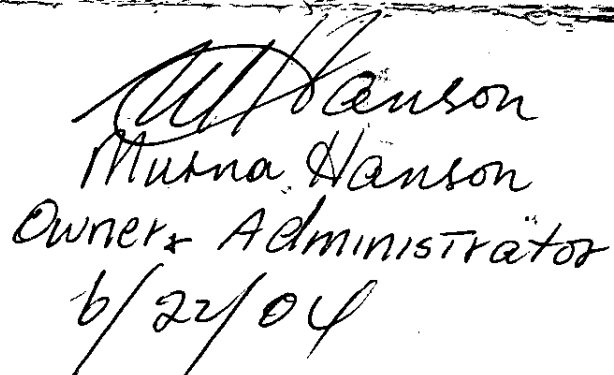 M Hanson
Murna Hanson
Owner & Administrator
6/22/04